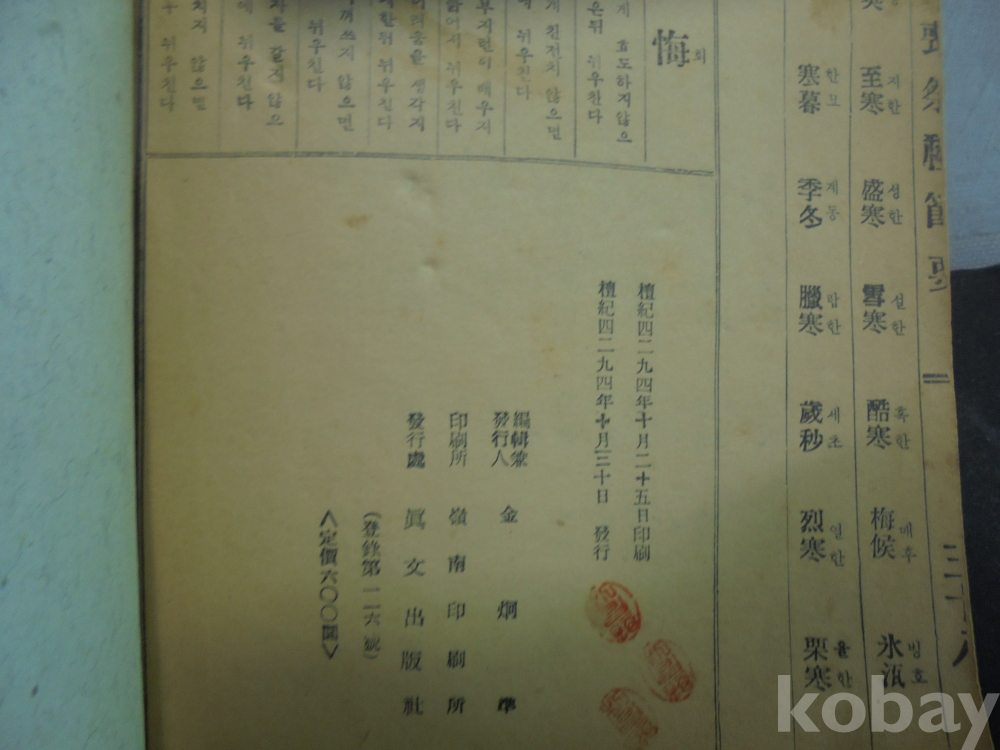 至寒 지한
盛寒 성한
雪寒 설한
酷寒 혹한
梅候 매후
氷沍 빙호
寒暮 한모
季冬 계동
臘寒 랍한
歲秒 세초
烈寒 열한
栗寒 율한
悔 회
게 효도하지않으
은뒤 뉘우친다
게 친전치 않으면
뉘우친다
부지런이 배우지
늙어서 뉘우친다
려움을 생각지
한뒤 뉘우친다
껴쓰지 않으면
뉘우친다
갈지 않으
뉘우친다
치지 않으면
뉘우친다
檀紀四二九四年十月二十五日印刷
檀紀四二九四年十月三十日 發行
編輯兼
發行人 金炯準
印刷所 嶺南印刷所
發行處 眞文出版社
(登錄第一二六號)
<定價六〇〇圜>
kobay